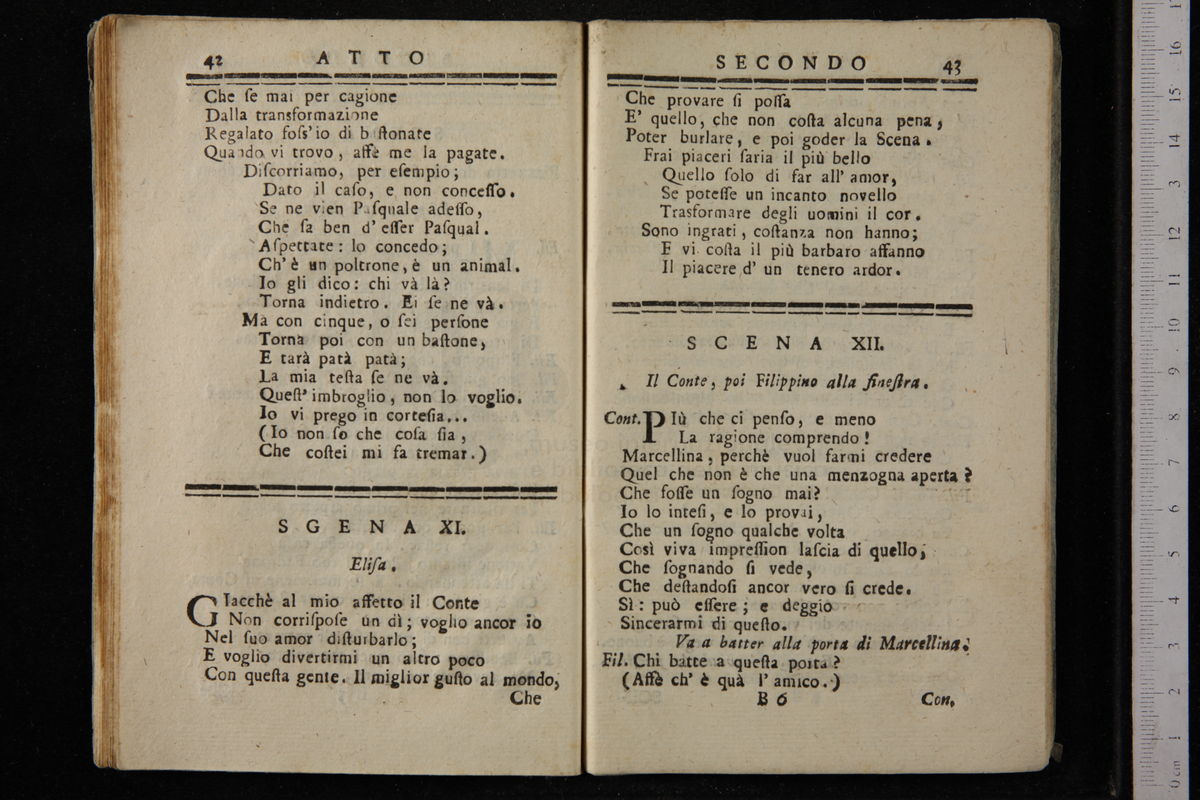 42 ATTO
Che ſe mai per cagione
Dalla transformazione
Regalato foſs'io di b ſtonate
Quando vi trovo, affè me la pagate.
Diſcorriamo, per eſempio;
Dato il caſo, e non conceſſo.
Se ne vien Paſquale adeſſo,
Che ſa ben d' eſſer Paſqual.
Aſpettate: lo concedo;
Ch' è un poltrone, è un animal.
Io gli dico: chi và là?
Torna indietro. Ei ſe ne và.
Ma con cinque, o ſei perſone
Torna poi con un baſtone,
E tarà patà patà;
La mia teſta ſe ne và.
Queſt' imbroglio, non lo voglio.
Io vi prego in corteſia...
(Io non ſo che coſa ſia,
Che coſtei mi fa tremar.)
SGENA XI.
Eliſa.
GIacchè al mio affetto il Conte
Non corriſpoſe un dì; voglio ancor io
Nel ſuo amor diſturbarlo;
E voglio divertirmi un altro poco
Con queſta gente. Il miglior guſto al mondo,
Che
SECONDO 43
Che provare ſi poſſa
E' quello, che non coſta alcuna pena,
Poter burlare, e poi goder la Scena.
Frai piaceri ſaria il più bello
Quello ſolo di far all' amor,
Se poteſſe un incanto novello
Trasformare degli uomini il cor.
Sono ingrati, coſtanza non hanno;
E vi coſta il più barbaro affanno
Il piacere d' un tenero ardor.
SCENA XII.
Il Conte, poi Filippino alla fineſtra.
Cont. PIù che ci penſo, e meno
La ragione comprendo!
Marcellina, perchè vuol farmi credere
Quel che non è che una menzogna aperta?
Che foſſe un ſogno mai?
Io lo inteſi, e lo provai,
Che un ſogno qualche volta
Così viva impreſſion laſcia di quello,
Che ſognando ſi vede,
Che deſtandoſi ancor vero ſi crede.
Sì: può eſſere; e deggio
Sincerarmi di queſto.
Va a batter alla porta di Marcellina.
Fil. Chi batte a queſta porta?
(Affè ch' è quà l' amico.)
B 6 Con.